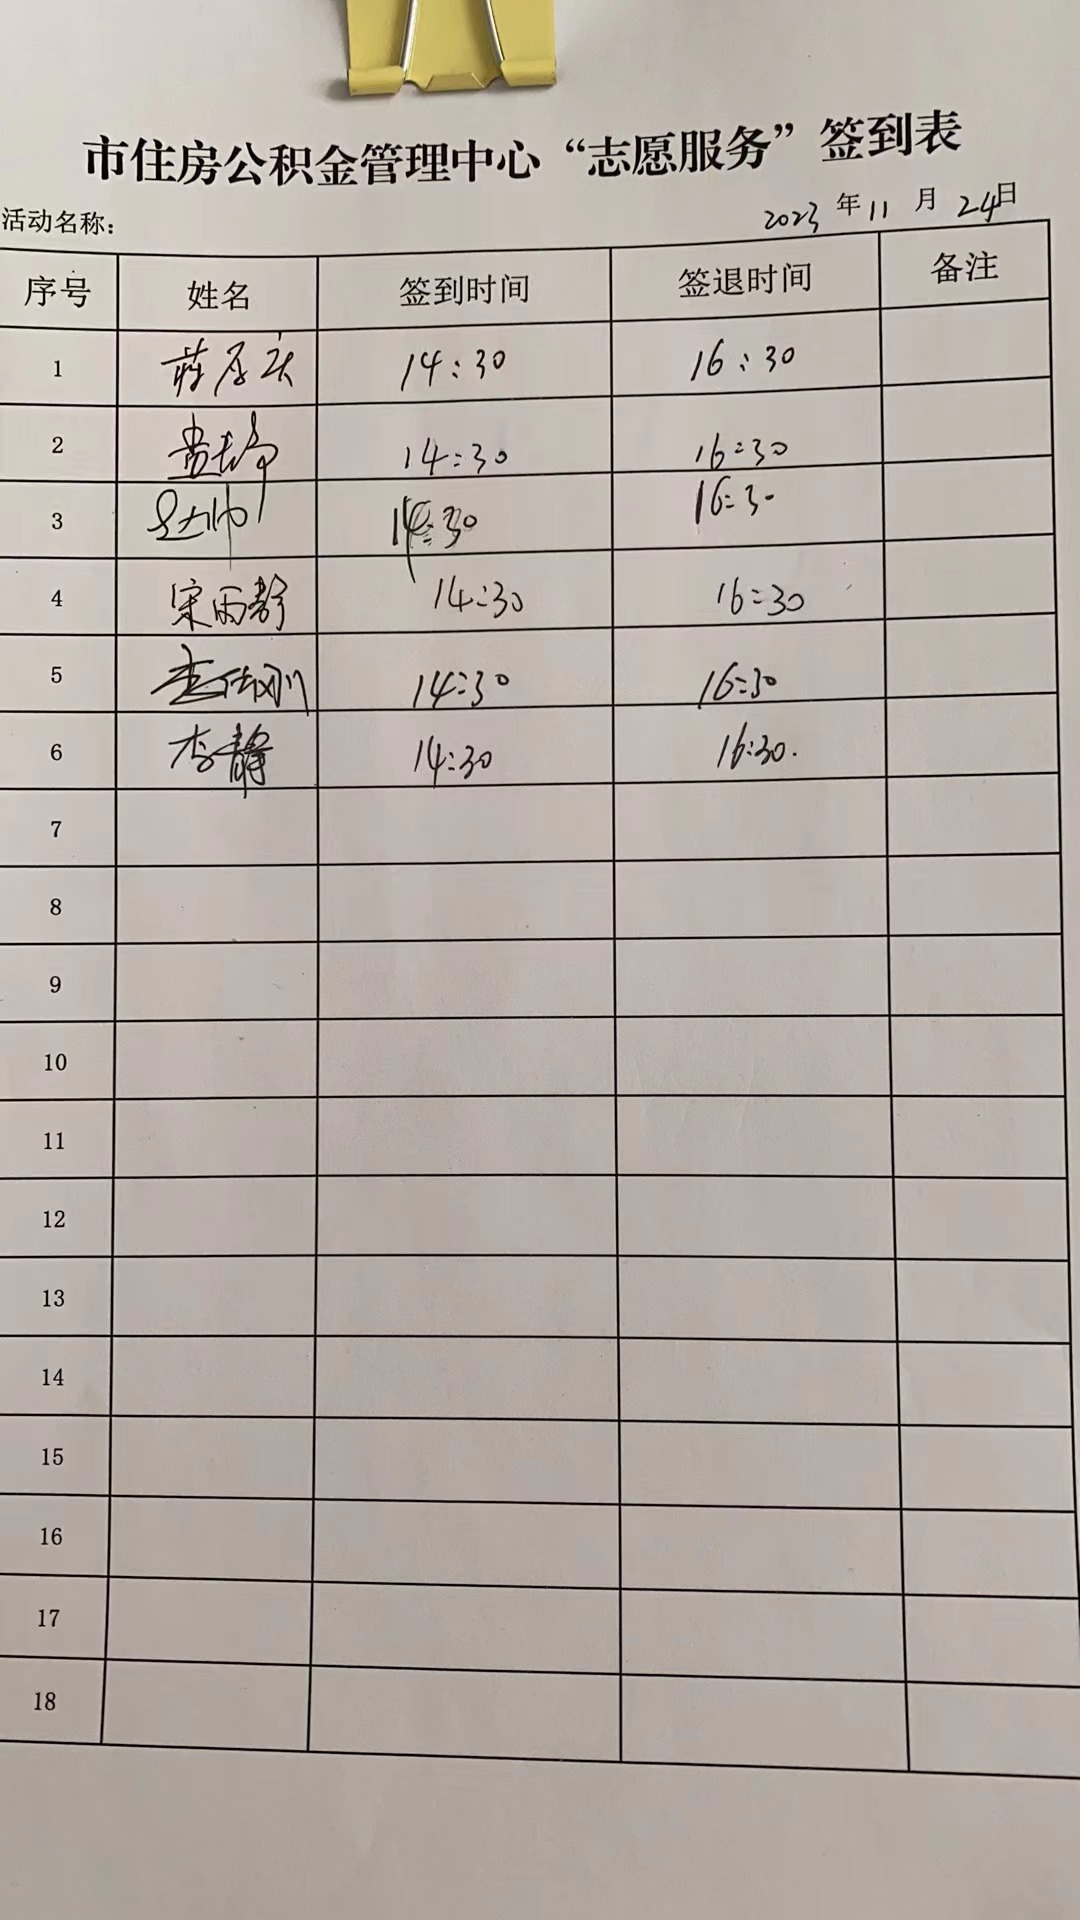 市住房公积金管理中心“志愿服务”签到表
活动名称： 2023年11月24日
序号 姓名 签到时间 签退时间 备注
1 14:30 16:30
2 14:30 16:30
3 14:30 16:30
4 宋雨静 14:30 16:30
5 14:30 16:30
6 李静 14:30 16:30.
7
8
9
10
11
12
13
14
15
16
17
18